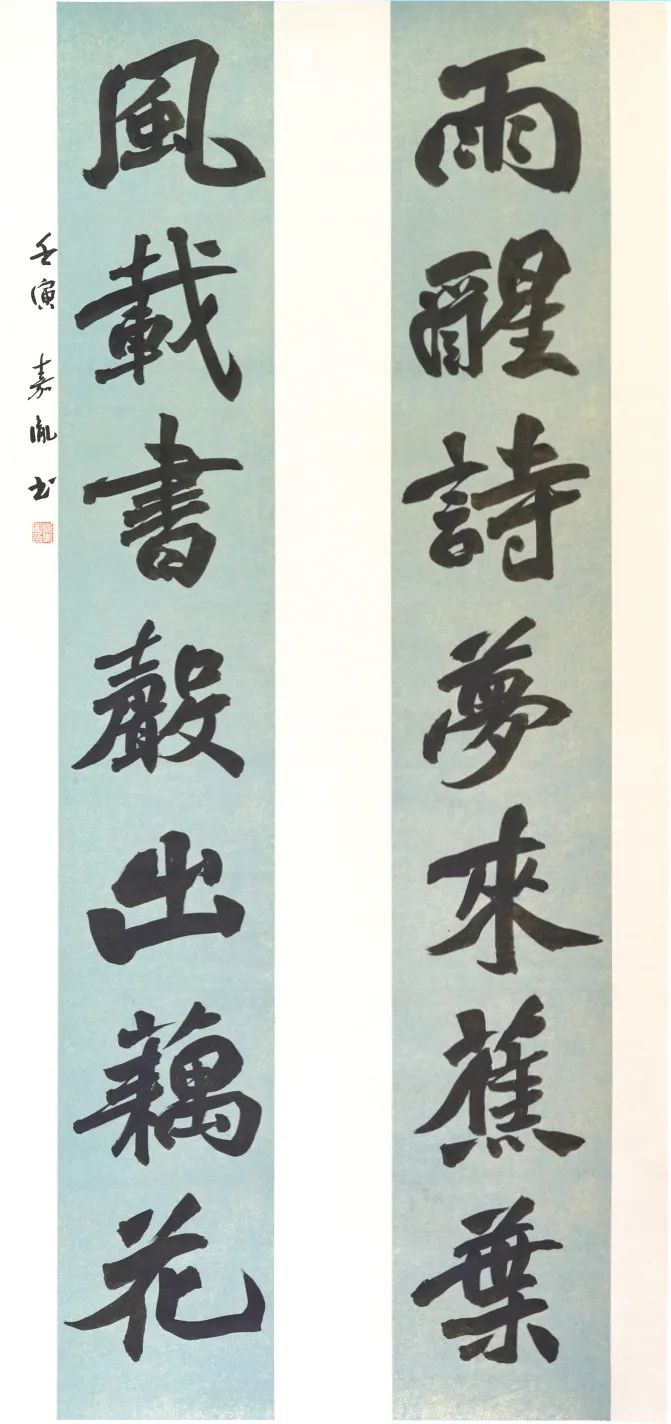 雨醒詩夢來蕉葉
風載書聲出藕花
壬寅 嘉胤书